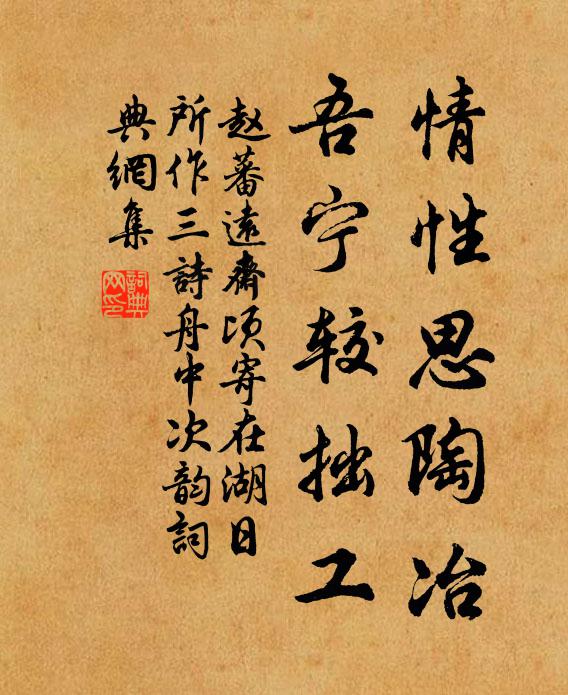 情性思陶冶
吾宁较拙工
赵蕃远斋顷寄在湖日
所作三詩舟中次韵詞
典網集
詞典网印